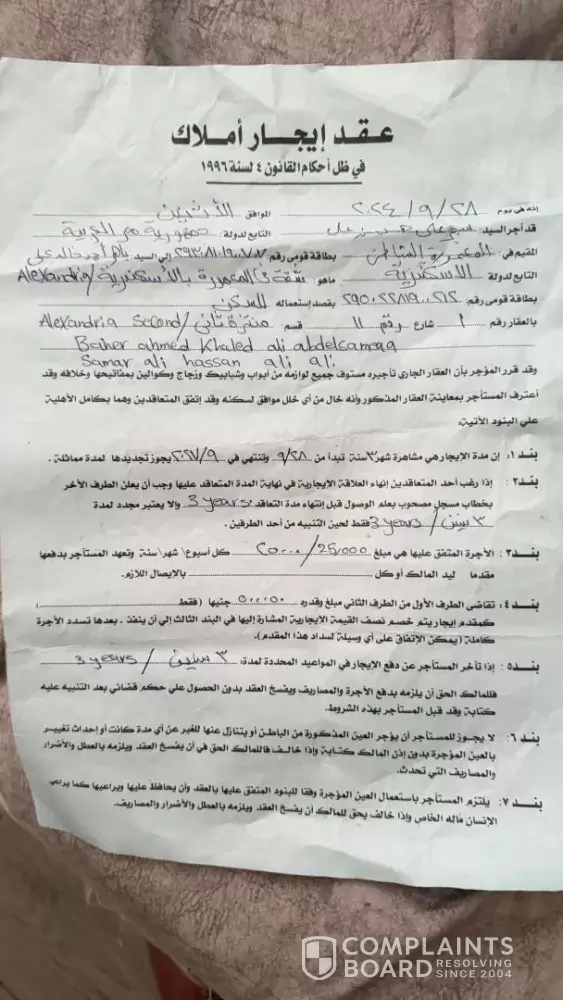 عقد إيجار أملاك
في ظل أحكام القانون ٤ لسنة ١٩٩٦
إنه في يوم ٢٠٢٤/٩/٢٨ الموافق الأثنين
قد أجر السيد حسن على التابع لدولة: جمهورية مصر العربية
المقيم في المعمورة الشاطئ بطاقة قومى رقم إلى السيد باهر أحمد خالد على
التابع لدولة الاسكندرية ماهو شقة فى المعمورة بالأسكندرية /Alexandria
بطاقة قومى رقم: بقصد إستعماله للسكن
بالعقار رقم ١ شارع رقم ١١ قسم: منتزة تاني/ Alexandria Second
Baher ahmed Khaled ali abdelsamaa
Samar ali hassan ali ali
وقد قرر المؤجر بأن العقار الجارى تأجيره مستوف جميع لوازمه من أبواب وشبابيك وزجاج وكوالين بمفاتيحها وخلافه وقد
أعترف المستأجر بمعاينة العقار المذكور وأنه خال من أي خلل موافق لسكنه وقد إتفق المتعاقدين وهما بكامل الأهلية
علي البنود الآتية:
بند ١: إن مدة الإيجار هي مشاهرة شهر ٣ سنة تبدأ من ٩/٢٨ وتنتهي في ٢٠٢٧/٩ يجوز تجديدها لمدة مماثلة.
بند ٢: إذا رغب أحد المتعاقدين إنهاء العلاقة الإيجارية في نهاية المدة المتعاقد عليها وجب أن يعلن الطرف الآخر
بخطاب مسجل مصحوب بعلم الوصول قبل إنتهاء مدة التعاقد: 3 years وإلا يعتبر مجدد لمدة
٣ سنين / 3 years فقط لحين التنبيه من أحد الطرفين.
بند ٣: الأجرة المتفق عليها هي مبلغ 25,000 / كل أسبوع/ شهر/ سنة وتعهد المستأجر بدفعها
مقدما ليد المالك أو كل بالإيصال اللازم.
بند ٤: تقاضى الطرف الأول من الطرف الثاني مبلغ وقدره جنيها (فقط )
كمقدم إيجار يتم خصم نصف القيمة الإيجارية المشارة إليها في البند الثالث إلي أن ينفذ، بعدها تسدد الأجرة
كاملة (يمكن الإتفاق علي أي وسيلة لسداد هذا المقدم).
بند ٥: إذا تأخر المستأجر عن دفع الإيجار في المواعيد المحددة لمدة: ٣ سنين / 3 years
فللمالك الحق أن يلزمه بدفع الأجرة والمصاريف ويفسخ العقد بدون الحصول علي حكم قضائي بعد التنبيه عليه
كتابة وقد قبل المستأجر بهذه الشروط.
بند ٦: لا يجوز للمستأجر أن يؤجر العين المذكورة من الباطن أو يتنازل عنها للغير عن أي مدة كانت أو إحداث تغيير
بالعين المؤجرة بدون إذن المالك كتابة وإذا خالف فللمالك الحق في أن يفسخ العقد ويلزمه بالعطل والأضرار
والمصاريف التي تحدث.
بند ٧: يلتزم المستأجر باستعمال العين المؤجرة وفقا للبنود المتفق عليها بالعقد وأن يحافظ عليها ويراعيها كما يراعي
الإنسان ماله الخاص وإذا خالف يحق للمالك أن يفسخ العقد ويلزمه بالعطل والأضرار والمصاريف.
COMPLAINTS
BOARD RESOLVING
SINCE 2004